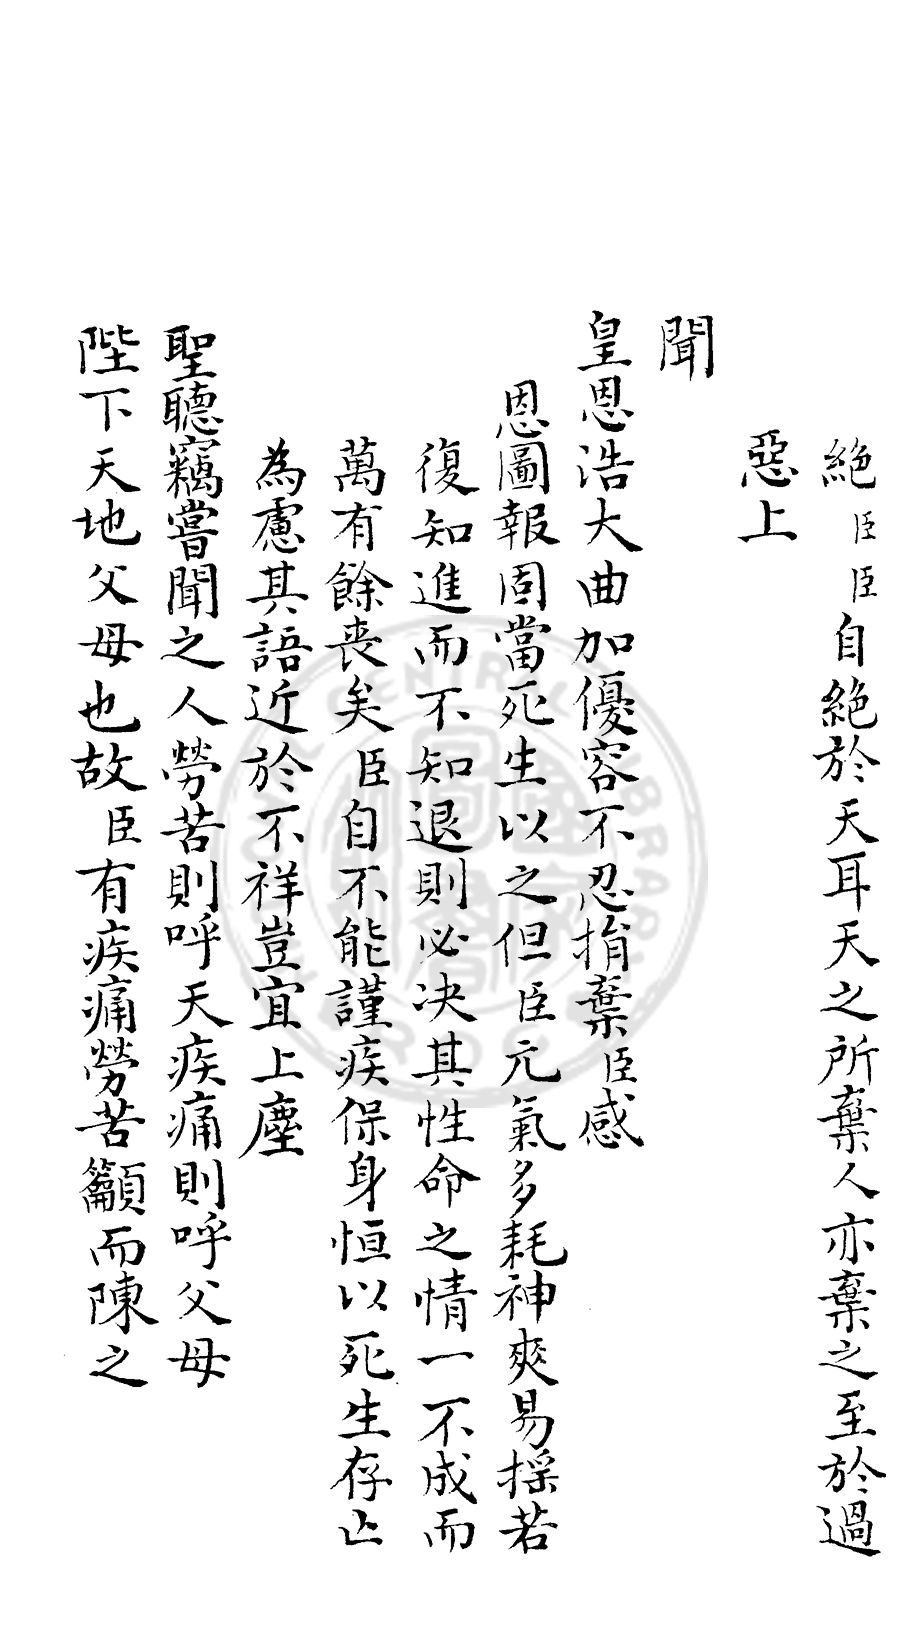 絶臣臣自絶於天耳天之所棄人亦棄之至於過
惡上
聞
皇恩浩大曲加優容不忍捐棄臣感
恩圖報固當死生以之但臣元氣多耗神爽易搖若
復知進而不知退則必決其性命之情一不成而
萬有餘喪矣臣自不能謹疾保身恒以死生存亡
為慮其語近於不祥豈宜上塵
聖聽竊嘗聞之人勞苦則呼天疾痛則呼父母
陛下天地父母也故臣有疾痛勞苦籲而陳之
NATIONAL CENTRAL LIBRARY